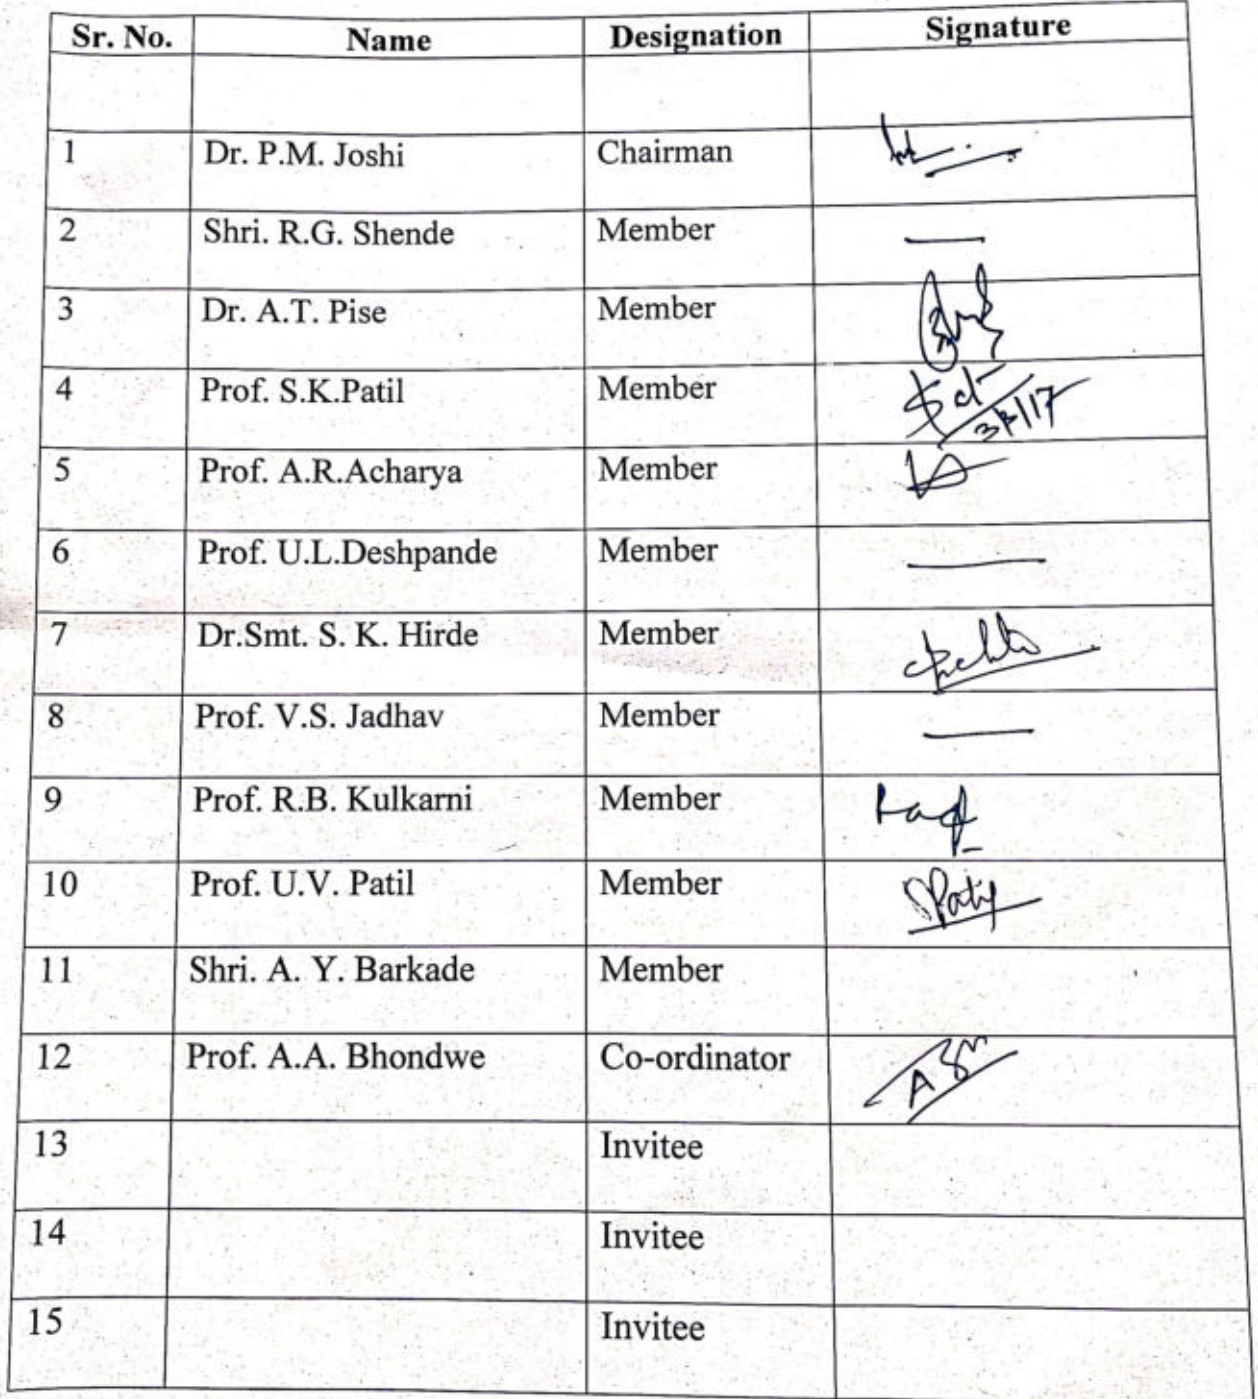 Sr. No. Name Designation Signature
1 Dr. P.M. Joshi Chairman
2 Shri. R.G. Shende Member —
3 Dr. A.T. Pise Member
4 Prof. S.K.Patil Member
5 Prof. A.R.Acharya Member
6 Prof. U.L.Deshpande Member —
7 Dr.Smt. S. K. Hirde Member
8 Prof. V.S. Jadhav Member —
9 Prof. R.B. Kulkarni Member
10 Prof. U.V. Patil Member
11 Shri. A. Y. Barkade Member
12 Prof. A.A. Bhondwe Co-ordinator
13 Invitee
14 Invitee
15 Invitee